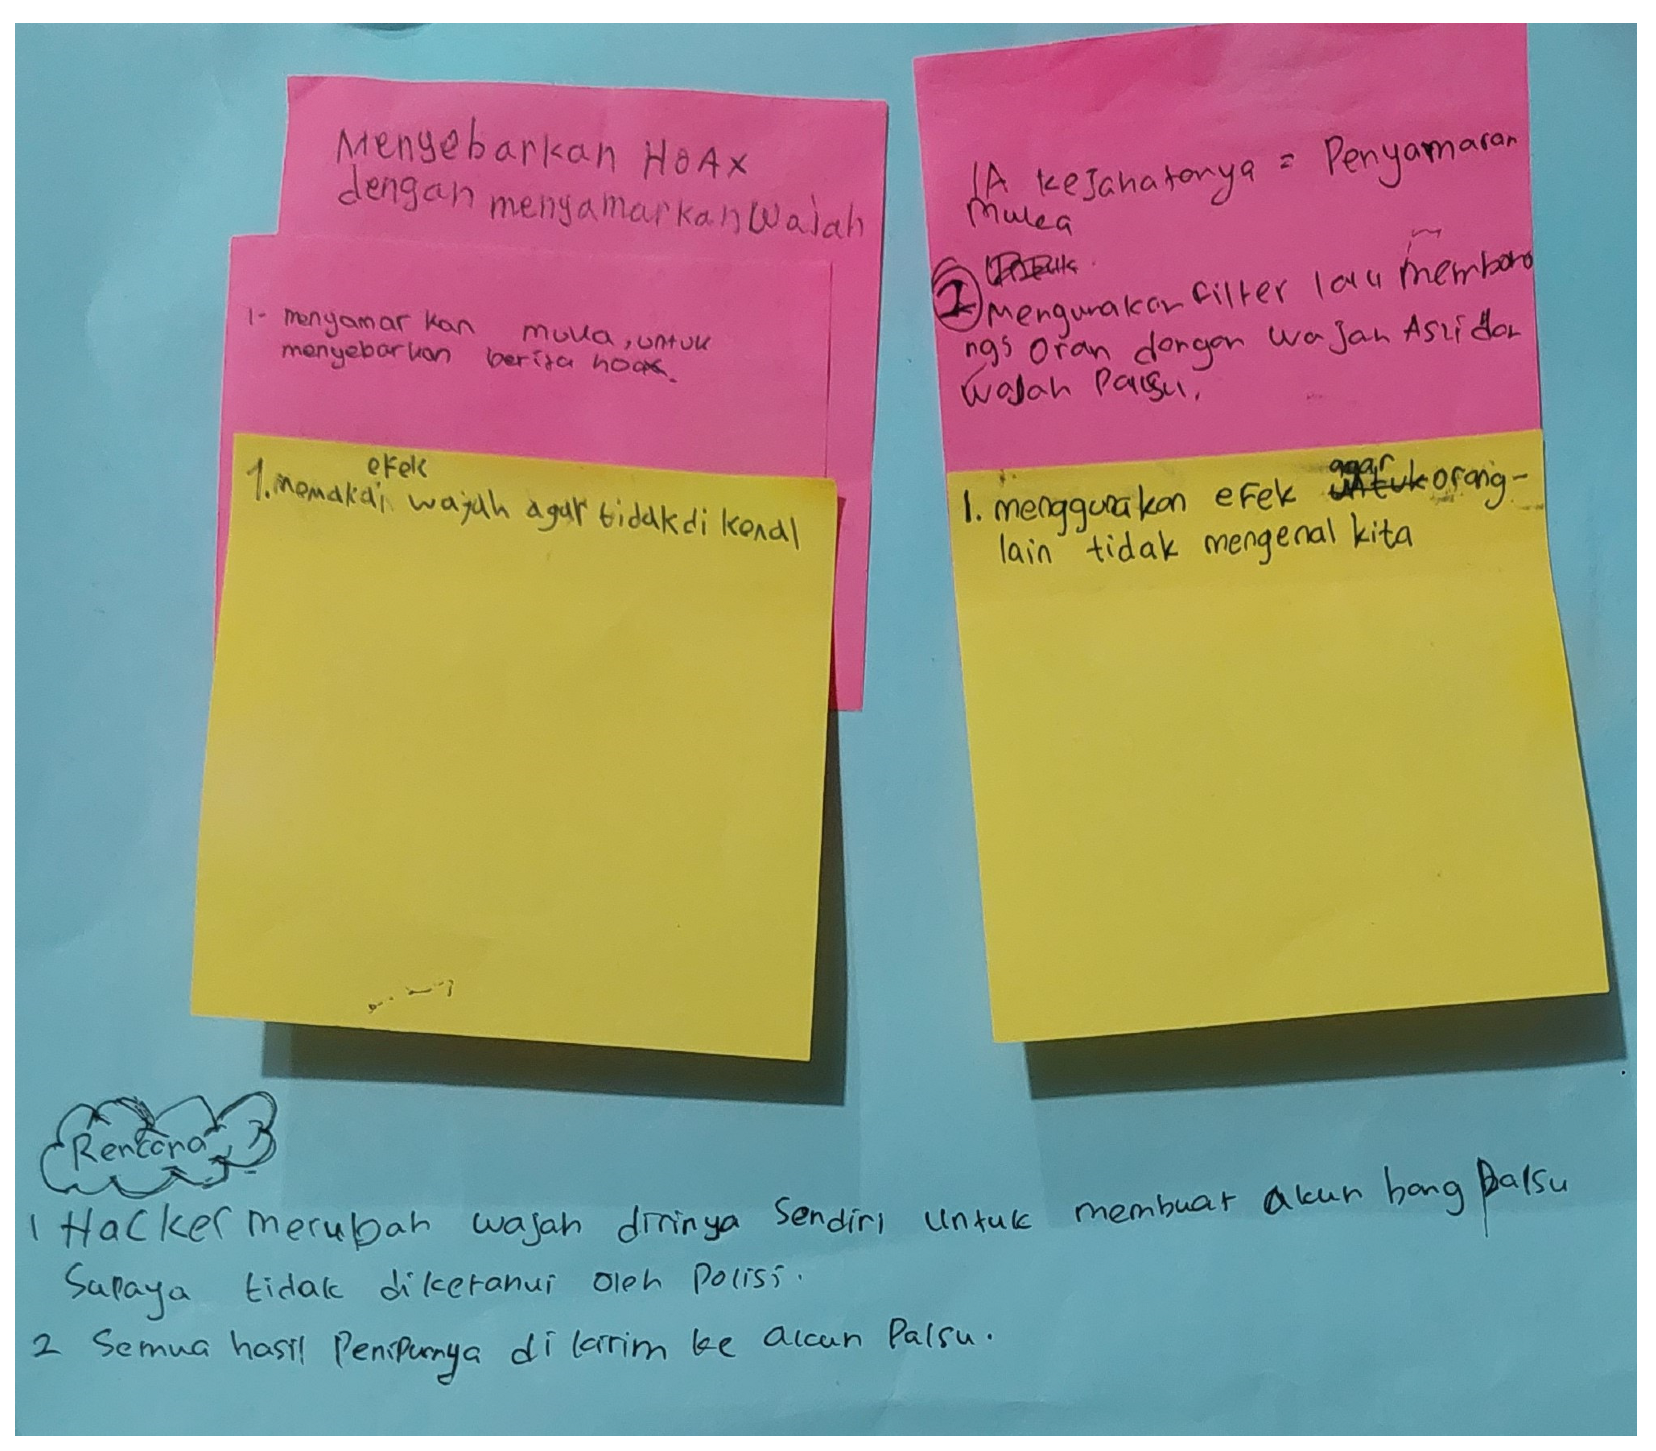 Menyebarkan HOAX
dengan menyamarkan Wajah
1- menyamar kan muka, untuk
menyebarkan berita hoax.
efek
1. memakai wajah agar tidak di kenal
IA kejahatanya = Penyamaran
Muka
2 Mengunakan filter lalu memboho
ngs oran dengan wajah Asli dan
wajah Palsu.
agar
1. menggunakan efek untuk orang-
lain tidak mengenal kita
Rencana
1 Hacker merubah wajah dirinya Sendiri untuk membuat akun bang Palsu
Supaya tidak diketahui oleh Polisi.
2 Semua hasil Penipunya di kirim ke akun Palsu.